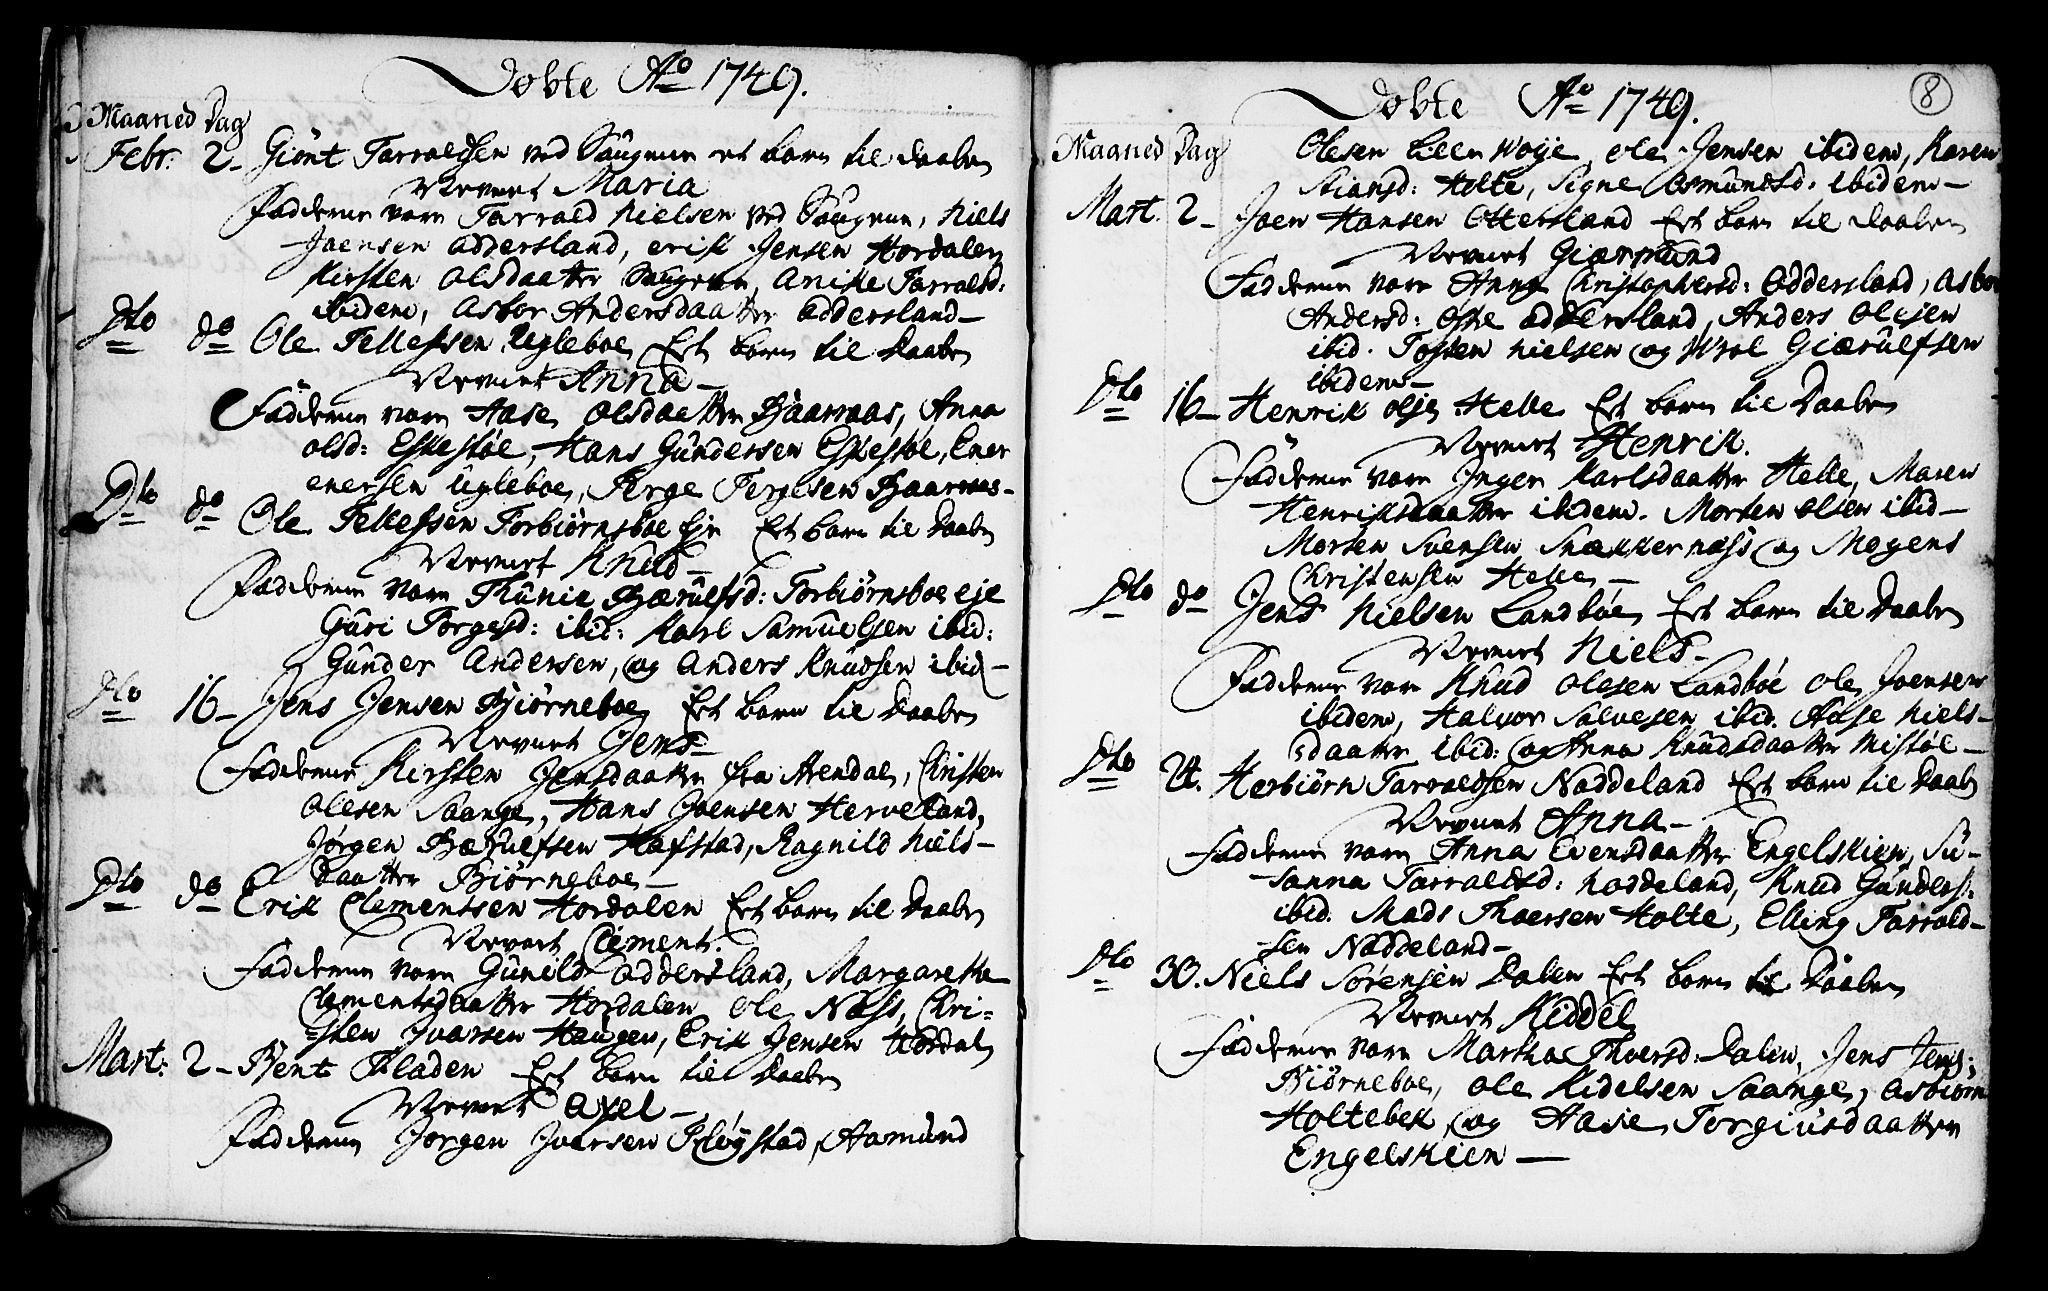 Døbte Ao 1749.
Maaned Dag
Febr: 2- Giønt Tarraldsen ved Saugene et barn til Daaben
Nevnet Maria
Fadderne vare Tarrald Nielsen ved Saugene, Niels
Joensen Oddersland, Erik Jensen Hordalen
Kirsten Olsdaatter Saugene, Anike Tarralsd:
ibidem, Asbor Andersdaatter Oddersland-
Dto do Ole Tellefssen Ugleboe Et barn til Daaben
Nevnet Anna-
Fadderne vare Aase Olsdaatter Baarnaas, Anna
olsd: Eskestøe, Hans Gundersen Eskestøe, Ener
enersen Ugleboe, Terge Tergesen Baarnaas-
Dto do Ole Tellefssen Torbiørnsboe Eje Et barn til Daaben
Nevnet Knud-
Fadderne vare Thunie Bærulfsd: Torbiørnsboe eje
Guri Torgesd: ibid: Karl Samuelsen ibid:
Gunder Andersen, og Anders Knudsen ibid-
Dto 16- Jens Jensen Biørneboe Et barn til Daaben
Nevnet Jens-
Fadderne Kirsten Jensdaatter fra Arendal, Christen
Olesen Saange, Hans Joensen Herveland,
Jørgen Bærulfsen Hafstad, Ragnild Niels-
Daatter Biørneboe-
Dto do Erik Clementsen Hordalen Et barn til Daaben
Nevnet Clement.
Fadderne vare Gunild Oddersland, Margaretha
Clementsdaatter Hordalen Ole Næss, Chri=
=sten Ivarsen Haugen, Erik Jensen Hordal
Mart: 2- Bent Pladen Et barn til Daaben
Nevnet Axel-
Fadderne Jørgen Iversen Fløystad, Aamund
8
Døbte Ao 1749.
Maaned Dag
Olesen Lille Woje, Ole Jensen ibidem, Karen
Stiansd: Holte, Signe Osmundsd: ibidem-
Mart. 2- Joen Hansen Ottersland Et barn til Daaben
Nevnet Giærmund
Fadderne vare Anna Christophersd: Oddersland, Asbor
Andersd: Østre Oddersland, Anders Olesen
ibid. Tosten Nielsen og Wrol Giærulfsen
ibidem-
Dto 16- Henrik Olsen Helle Et barn til Daaben
Nevnet Henrik.
Fadderne vare Inger Karlsdaatter Helle, Maren
Henriksdaatter ibidem. Morten Olsen ibid-
Morten Svensen Snækkernæss og Mogens
Christensen Helle-
Dto do Jens Nielsen Landbøe Et barn til Daaben
Nevnet Niels-
Fadderne vare Knud Olesen Landbøe Ole Joensen
ibidem, Halvor Salvesen ibid. Aase Niels-
sdaatter ibid: og Anna Knudsdaatter Mistøl-
Dto 24. Herbiørn Tarraldsen Naddeland Et barn til Daab
Nevnet Anna-
Fadderne vare Anna Evensdaatter Engelskien, Su-
-sanna Tarraldsd: Naddeland, Knud Gunders:
ibid. Mads Thoersen Holte, Elling Tarrald-
-sen Naddeland-
Dto 30. Niels Sørensen Dalen Et barn til Daaben
Nevnet Kiddel
Fadderne vare Martha Thoersd: Dalen, Jens Jens:
Biørneboe, Ole Kidelsen Saange, Asbiørn
Holtebek, og Aase Torgiusdaatter
Engelskien-